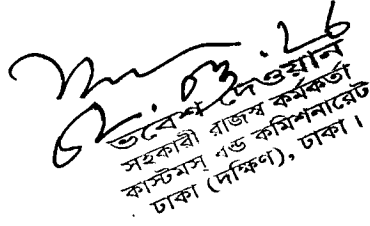 ভবেশ দেওয়ান
সহকারী রাজস্ব কর্মকর্তা
কাস্টমস্ এন্ড কমিশনারেট
ঢাকা (দক্ষিণ), ঢাকা।